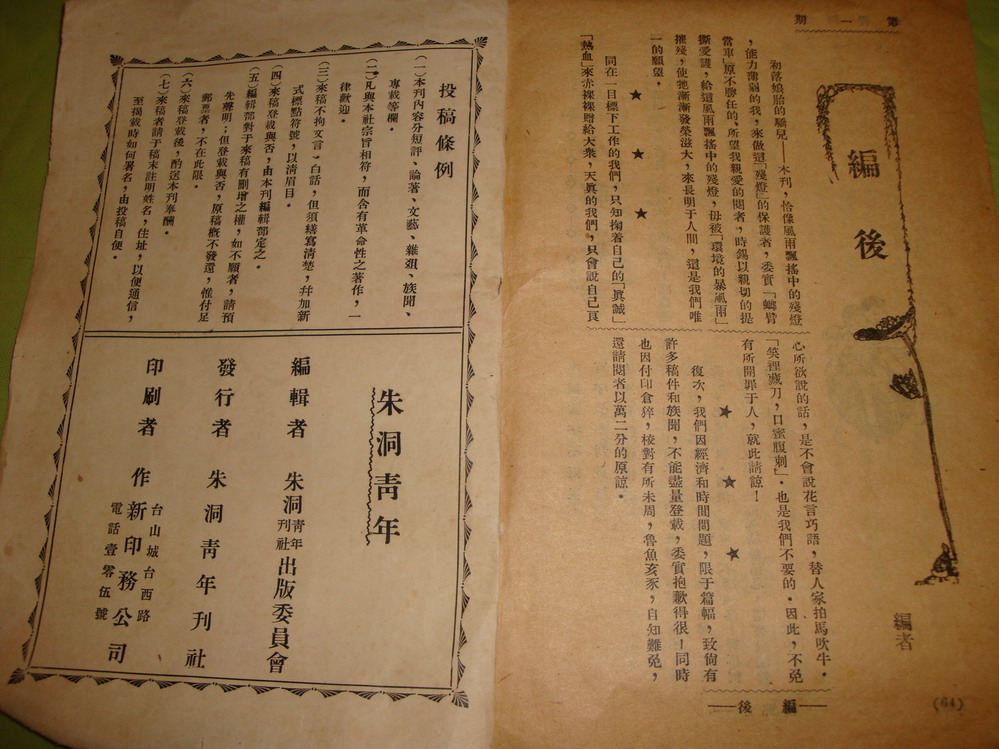 第一期
編後
編者
初落娘胎的驕兒——本刊，恰像風雨飄搖中的殘燈
，能力薄弱的我，來做這「殘燈」的保護者，委實「螂臂
當車」原不勝任的、所望我親愛的閱者，時錫以親切的提
撕愛護，給這風雨飄搖中的殘燈，毋被「環境的暴風雨」
摧殘，使牠漸漸發榮滋大，來長明于人間，這是我們唯
一的願望，
★ ★ ★
同在一目標下工作的我們，只知掬着自己的「眞誠」
「熱血」來赤裸裸贈給大衆，天眞的我們，只會說自己良
心所欲說的話，是不會說花言巧語，替人家拍馬吹牛．
「笑裡藏刀，口蜜腹刺」．也是我們不要的．因此，不免
有所開罪于人，就此請諒！
★ ★ ★
復次，我們因經濟和時間問題，限于篇幅，致倘有
許多稿件和族聞，不能盡量登載，委實抱歉得很！同時
也因付印倉猝，校對有所未周，魯魚亥豕，自知難免，
還請閱者以萬二分的原諒．
——編後——
(64)
投稿條例
(一)本刊內容分短評、論著、文藝、雜俎、族聞、
專載等欄．
(二)凡與本社宗旨相符，而含有革命性之著作，一
律歡迎．
(三)來稿不拘文言、白話，但須繕寫清楚，幷加新
式標點符號，以清眉目．
(四)來稿登載與否，由本刊編輯部定之．
(五)編輯部對于來稿有刪增之權，如不願者，請預
先聲明；但登載與否，原稿槪不發還，惟付足
郵票者，不在此限．
(六)來稿登載後，酌送本刊奉酬．
(七)來稿者請于稿末註明姓名，住址，以便通信，
至揭載時如何署名，由投稿自便．
朱洞靑年
編輯者 朱洞靑年刊社出版委員會
發行者 朱洞靑年刊社
印刷者 作新印務公司
台山城台西路
電話壹零伍號